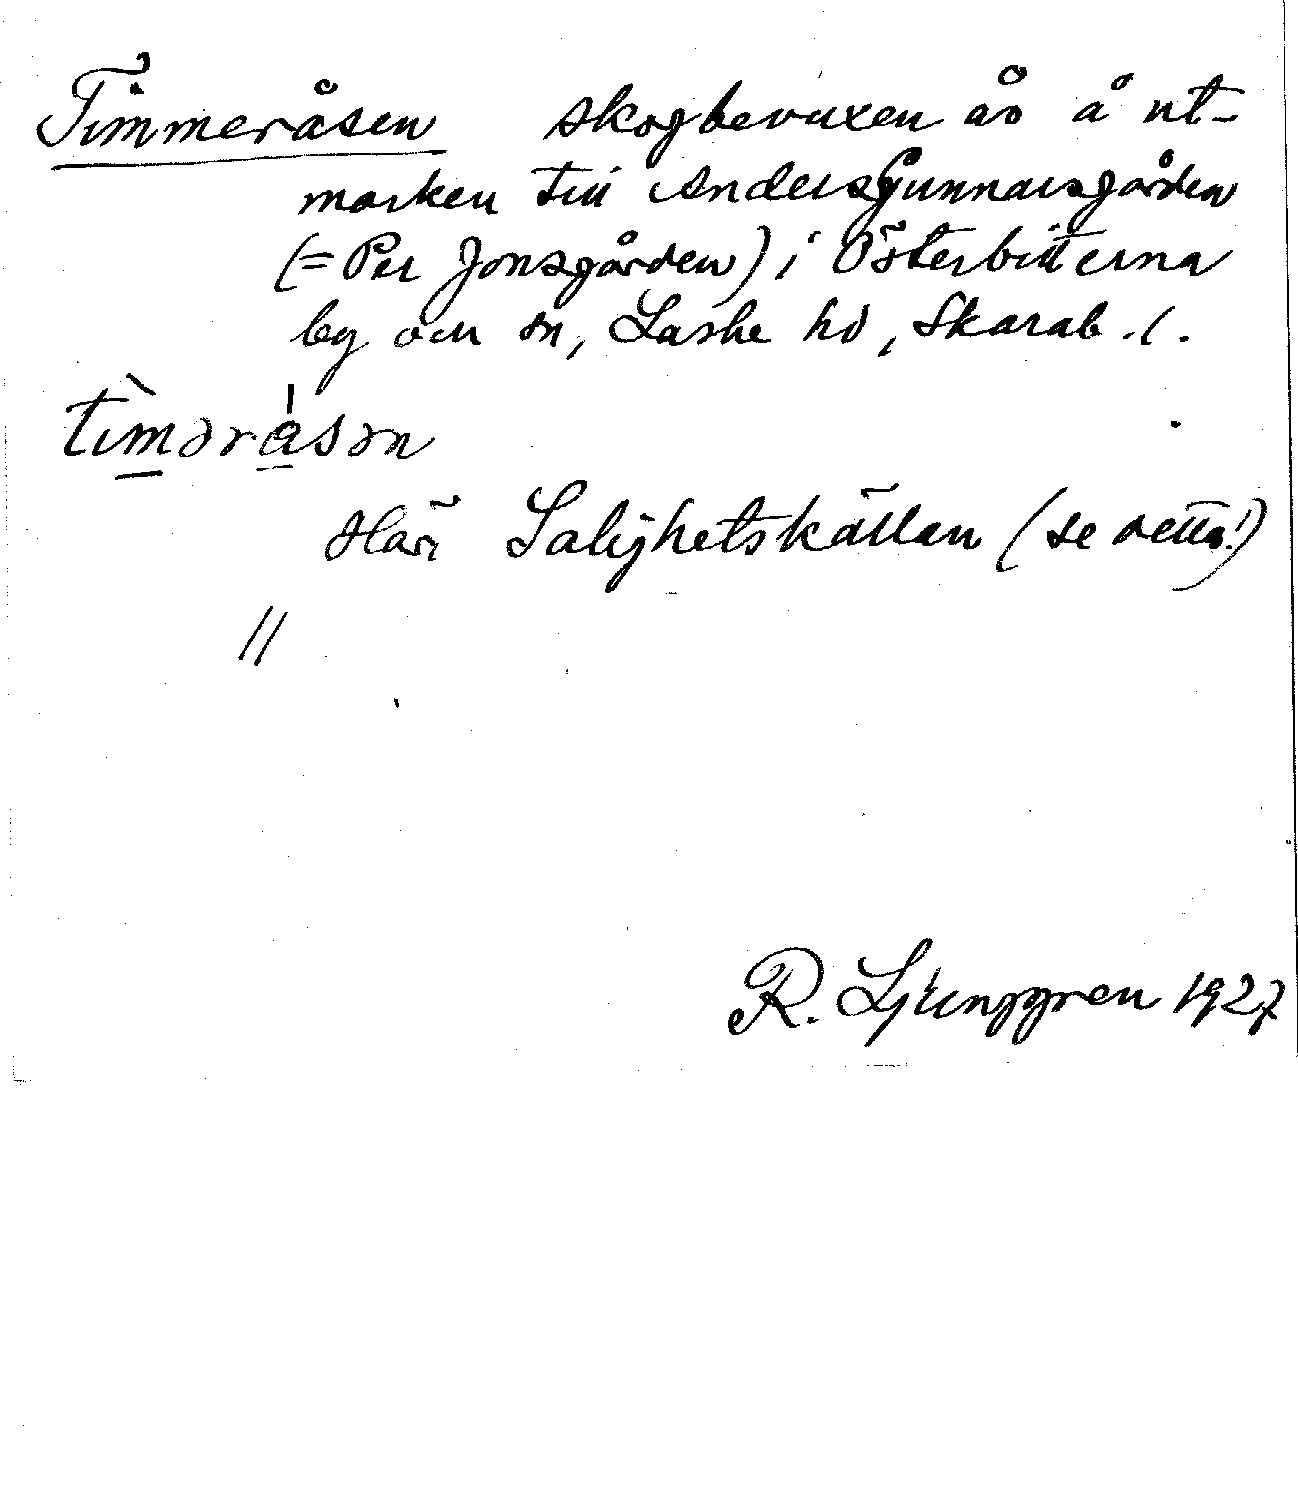 Timmeråsen skogbevuxen ås å ut-
marken till AndersGunnarsgården
(= Per Jonsgården) i Österbitterna
by och sn, Laske hd, Skarab. l.
tìməråsən
Här Salighetskällan (se detta!)
//
R. Ljunggren 1927